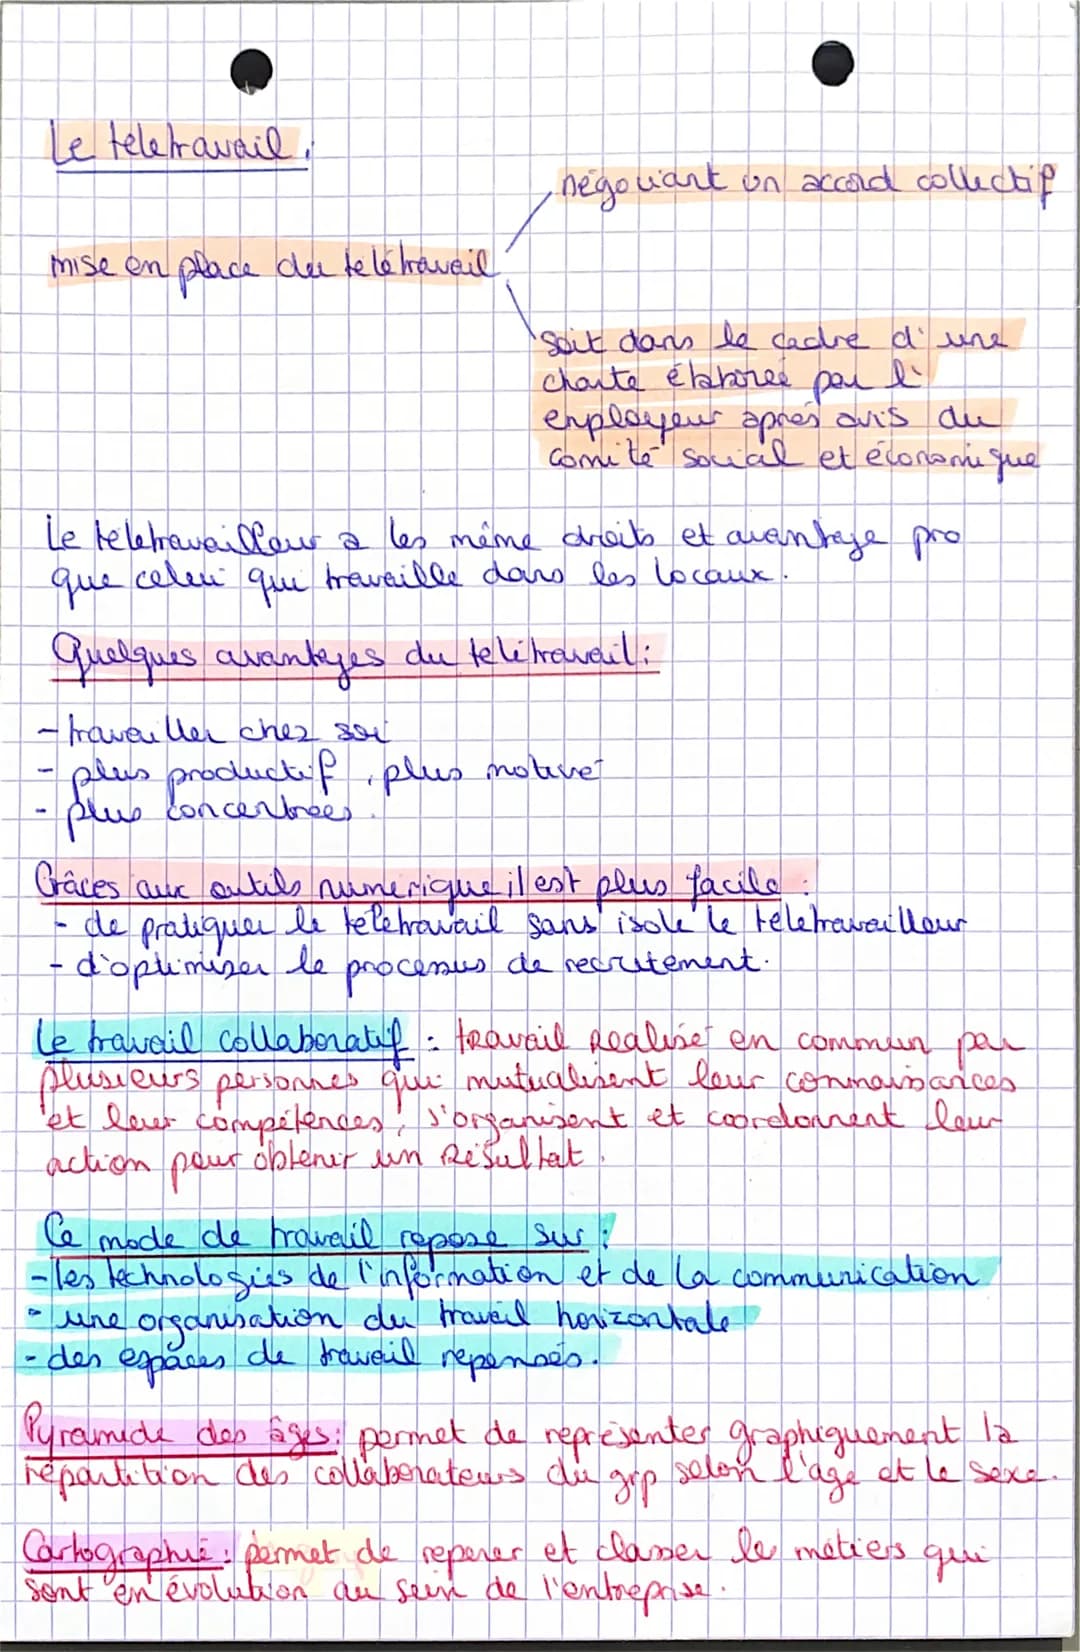 Le télétravail.
négociant un accord collectif
mise en place du télétravail
soit dans le cadre d'une
charte élaborée par l'
employeur après avis du
comité social et économique
Le télétravailleur a les même droits et avantage pro
que celui qui travaille dans les locaux.
Quelques avantages du télétravail :
- travailler chez soi
- plus productif, plus motivé
- plus concentrées.
Grâces aux outils numérique il est plus facile :
- de pratiquer le télétravail sans isolé le télétravailleur
- d'optimiser le processus de recrutement.
Le travail collaboratif : travail réalisé en commun par
plusieurs personnes qui mutualisent leur connaissances
et leur compétences, s'organisent et coordonnent leur
action pour obtenir un résultat.
Ce mode de travail repose sur :
- les technologies de l'information et de la communication
- une organisation du travail horizontale
- des espaces de travail repensés.
Pyramide des âges : permet de représenter graphiquement la
répartition des collaborateurs du grp selon l'age et le sexe.
Cartographie : permet de reperer et classer le métiers qui
sont en évolution au sein de l'entreprise.